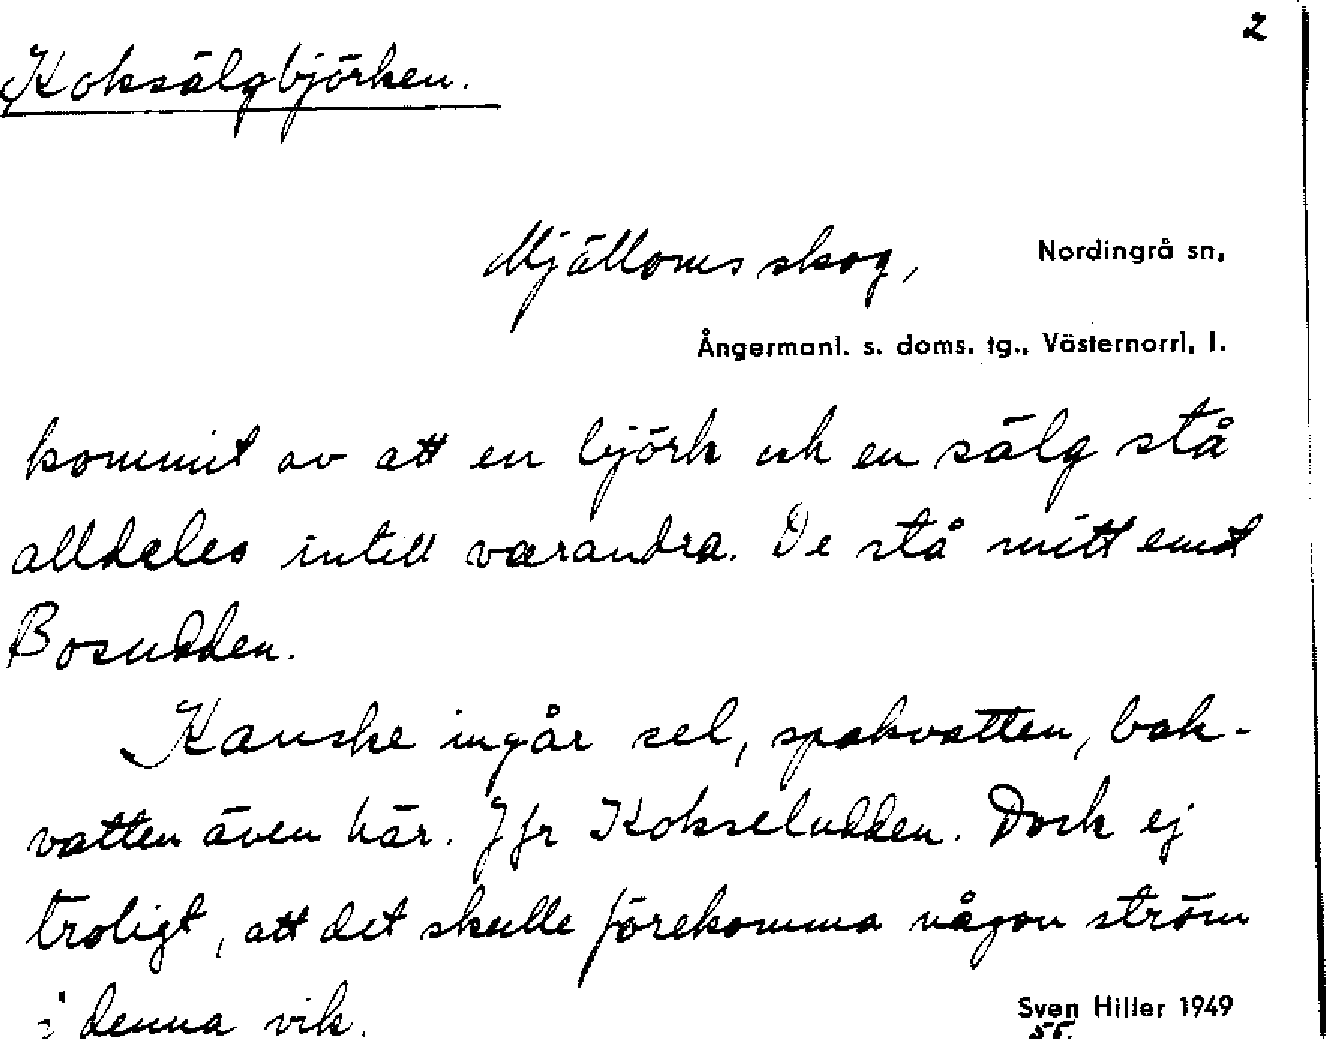 2
Koksälgbjörken.
Mjälloms skog, Nordingrå sn,
Ångermanl. s. doms. tg., Västernorrl. l.
kommit av att en björk och en sälg stå
alldeles intill varandra. De stå mitt emot
Bosudden.
Kanske ingår sel, spakvatten, bak-
vatten även här. Jfr Kokseludden. Dock ej
troligt, att det skulle förekomma någon ström
i denna vik.
Sven Hiller 1949
55.